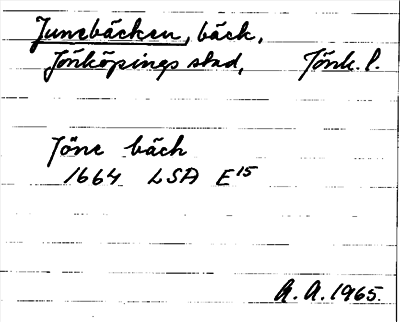 Junebäcken, bäck,
Jönköpings stad, Jönk. l.
Jöne bäck
1664 LSA E15
A. A. 1965.